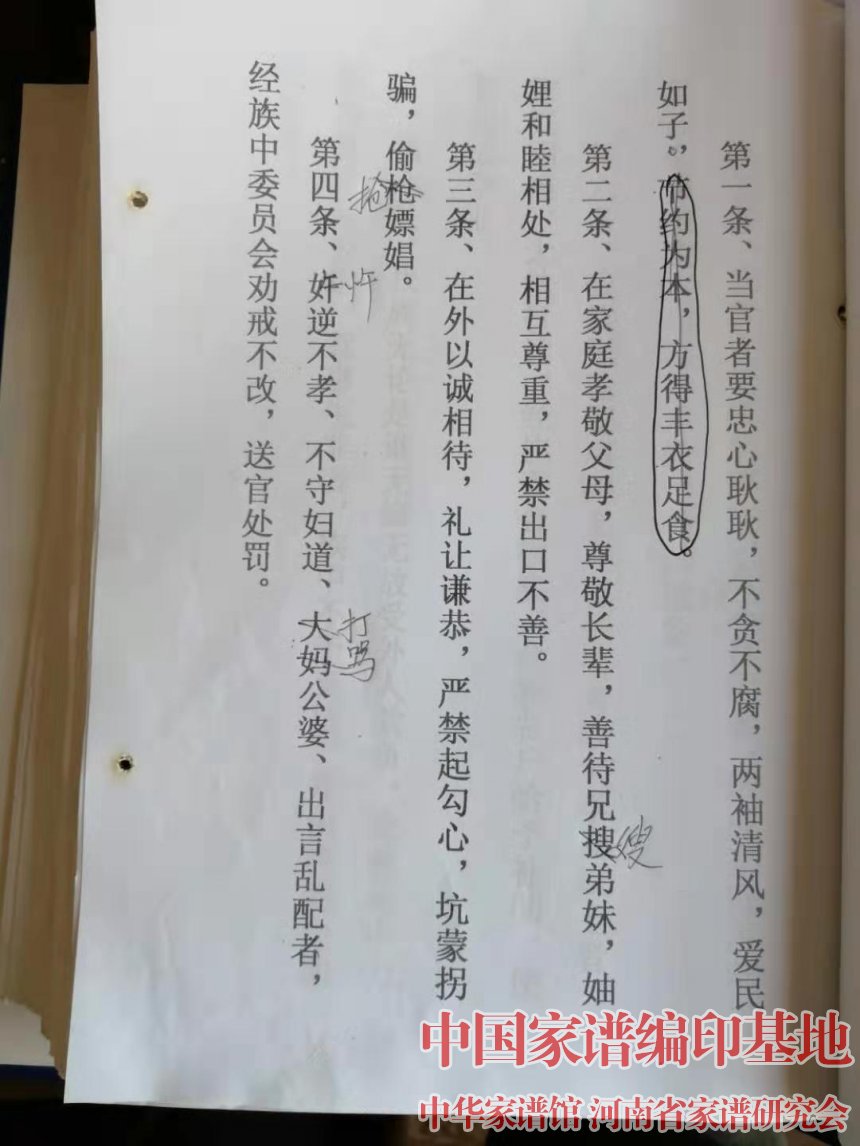 第一条、当官者要忠心耿耿，不贪不腐，两袖清风，爱民
如子，节约为本，方得丰衣足食。
第二条、在家庭孝敬父母，尊敬长辈，善待兄搜弟妹，妯
嫂
娌和睦相处，相互尊重，严禁出口不善。
第三条、在外以诚相待，礼让谦恭，严禁起勾心，坑蒙拐
骗，偷枪嫖娼。
抢
第四条、奸逆不孝、不守妇道、大妈公婆、出言乱配者，
忤
打骂
经族中委员会劝戒不改，送官处罚。
中国家谱编印基地
中华家谱馆 河南省家谱研究会